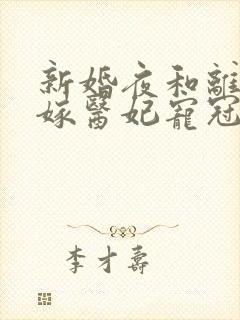 新婚夜和離
嫁醫妃寵冠
李才壽